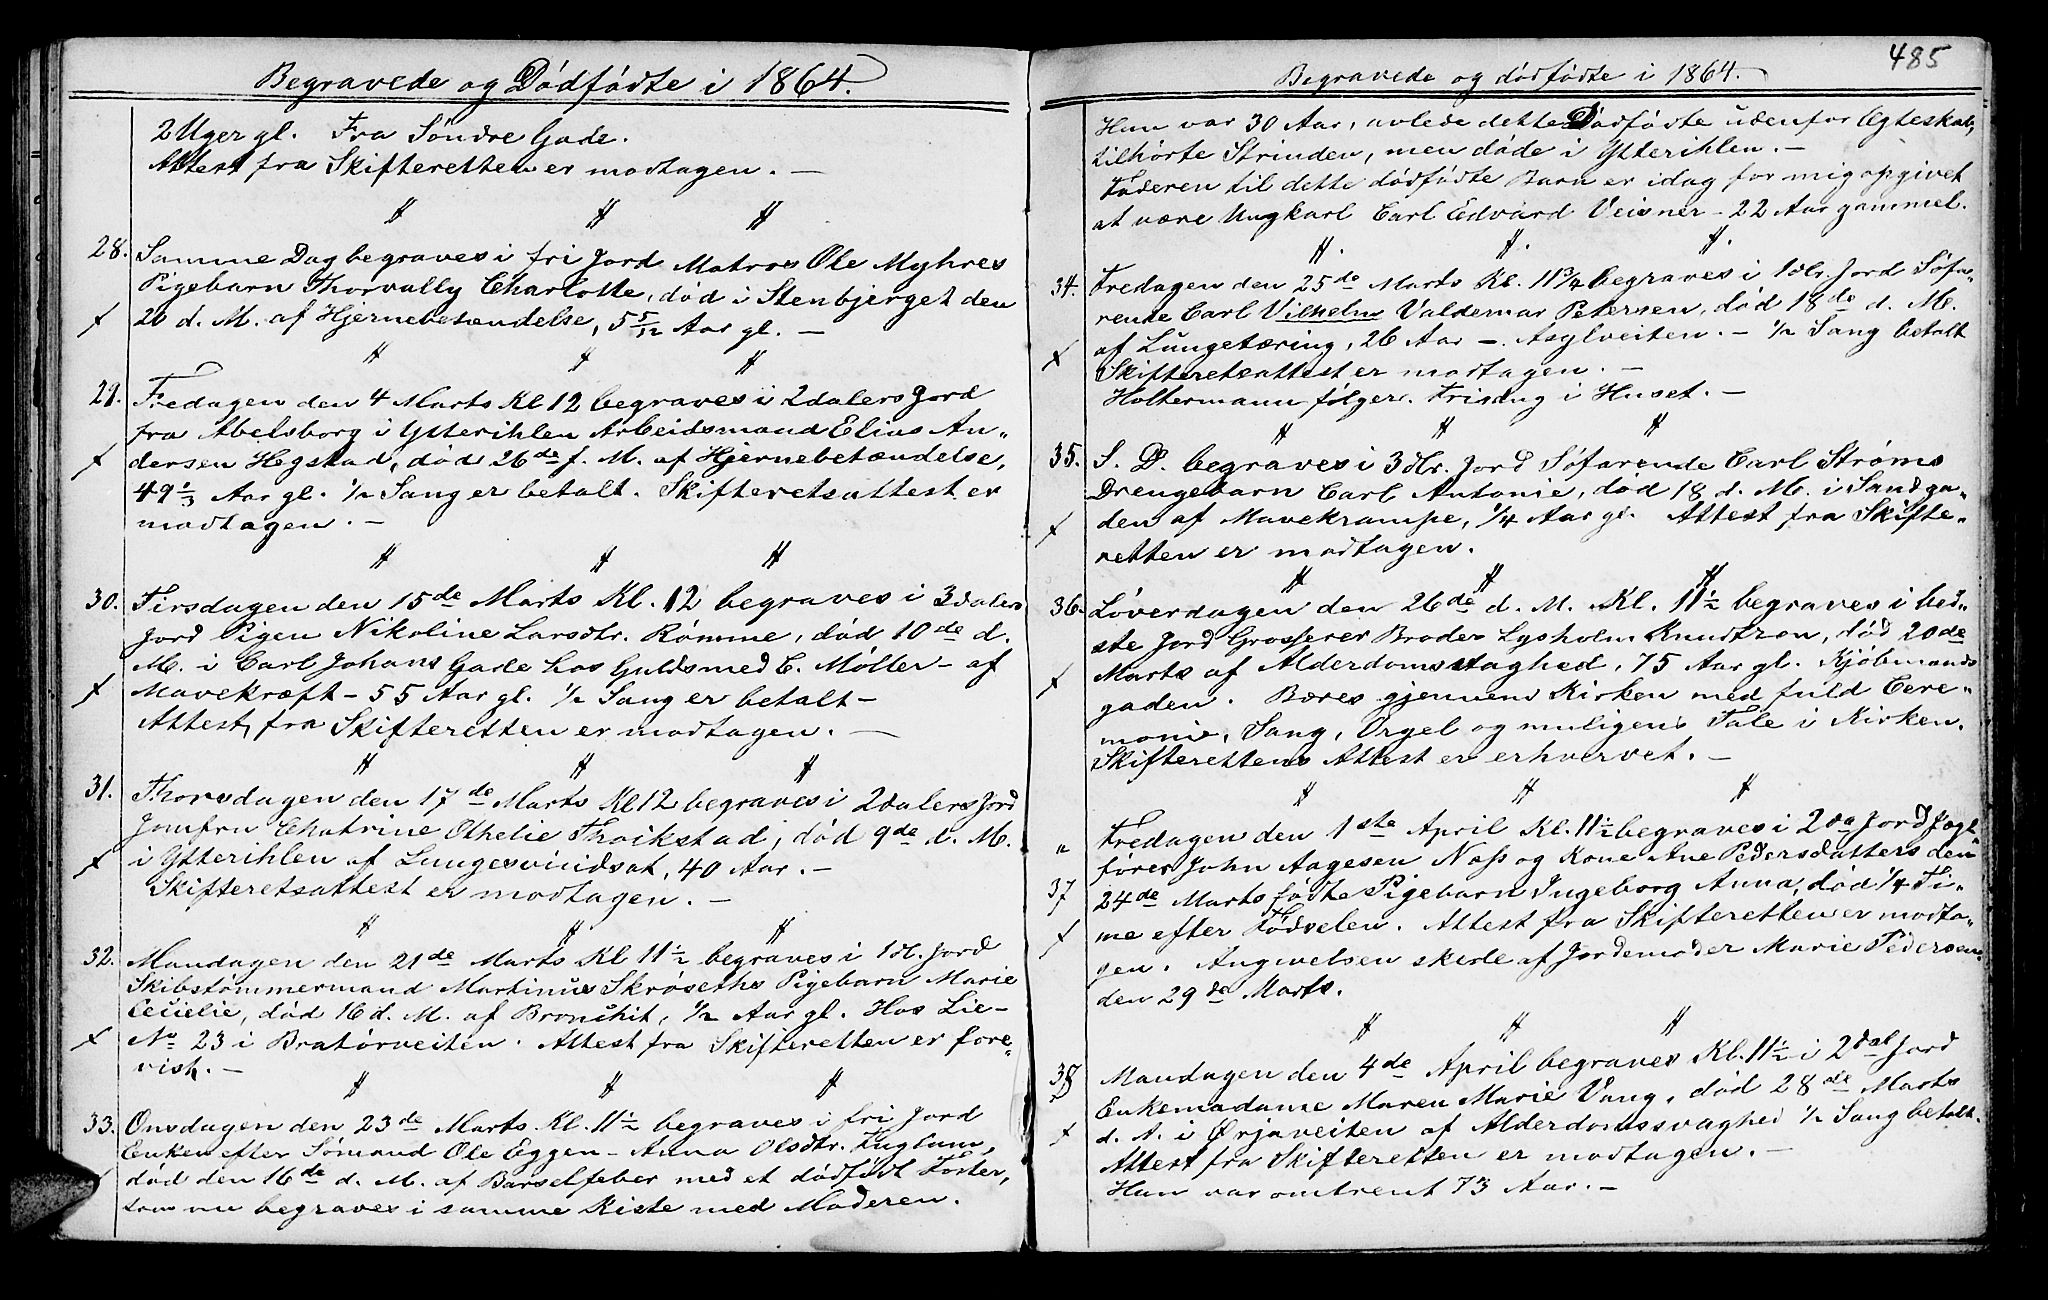 Begravede og Dødfødte i 1864.
2 Uger gl. Fra Søndre Gade.
Attest fra Skifteretten er modtagen. –
28. Samme Dag begraves i fri Jord Matros Ole Myhres
Pigebarn Thorvally Charlotte, død i Stenbjerget den
20 d. M. af Hjernebetændelse, 5 5/12 Aar gl. –
29. Fredagen den 4 Marts Kl 12 begraves i 2 dalers Jord
fra Abelsborg i Ytterihlen Arbeidsmand Elias An„
dersen Hegstad, død 26de f. M. af Hjernebetændelse,
49 1/3 Aar gl. 1/2 Sang er betalt. Skifteretsattest er
modtagen. –
30. Tirsdagen den 15de Marts Kl. 12 begraves i 3 dalers
Jord Pigen Nikoline Larsdtr. Rømme, død 10de d.
M. i Carl Johans Gade hos Guldsmed C. Møller – af
Mavekræft – 55 Aar gl. 1/2 Sang er betalt –
Attest fra Skifteretten er modtagen. –
31. Thorsdagen den 17de Marts Kl 12 begraves i 2 dalers Jord
Jomfru Chatrine Othelie Thoikstad, død 9de d. M.
i Ytterihlen af Lungesvindsot, 40 Aar. –
Skifteretsattest er modtagen. –
32. Mandagen den 21de Marts Kl 11 1/2 begraves i 1 dl. Jord
Skibstømmermand Martinus Skrøseths Pigebarn Marie
Cecielie, død 16 d. M. af Bronchit, 1/2 Aar gl. Hos Lie –
No 23 i Bratørveiten. Attest fra Skifteretten er fore„
vist. –
33. Onsdagen den 23de Marts Kl. 11 1/2 begraves i fri Jord
Enken efter Sømand Ole Eggen – Anna Olsdtr. Fuglum,
død den 16de d. M. af Barselfeber med et dødfødt Foster,
som nu begraves i samme Kiste med Moderen.
485
Begravede og dødfødte i 1864.
Hun var 30 Aar, avlede dette Dødfødte udenfor Ægteskab,
tilhørte Strinden, men døde i Ytterihlen. –
Faderen til dette dødfødte Barn er idag for mig opgivet
at være Ungkarl Carl Edvard Veisner – 22 Aar gammel.
34. Fredagen den 25de Marts Kl. 11 3/4 begraves i 1 dlr. Jord Søfa„
rende Carl Vilhelm Valdemar Petersen, død 18de d. M.
af Lungetæring, 26 Aar –. Asylveiten. – 1/2 Sang betalt
Skifteretsattest er modtagen. –
Holtermann følger. Frisang i Huset. –
35. S. D. begraves i 3 dlr. Jord Søfarende Carl Strøms
Drengebarn Carl Antonie, død 18 d. M. i Sandga„
den af Mavekrampe, 1/4 Aar gl. Attest fra Skifte„
retten er modtagen.
36. Løverdagen den 26de d. M. Kl. 11 1/2 begraves i bed„
ste Jord Grosserer Broder Lysholm Knudtzon, død 20de
Marts af Alderdomssvaghed, 75 Aar gl. Kjøbmands
gaden. Bæres gjennem Kirken med fuld Cere„
monie, Sang, Orgel og muligens Tale i Kirken.
Skifterettens Attest er erhvervet. –
„ Fredagen den 1ste April Kl. 11 1/2 begraves i 2 da Jord Fogt
fører John Aagesen Næss og Kone Ane Pedersdatters den
37 24de Marts fødte Pigebarn Ingeborg Anna, død 1/4 Ti„
me efter Fødselen. Attest fra Skifteretten er modta„
gen. Angivelsen skede af Jordemoder Marie Pedersen
den 29de Marts.
38 Mandagen den 4de April begraves Kl. 11 1/2 i 2 dal Jord
Enkemadame Maren Marie Vang, død 28de Marts
d. A. i Ørjaveiten af Alderdomssvaghed 1/2 Sang betalt.
Attest fra Skifteretten er modtagen. –
Hun var omtrent 73 Aar. –